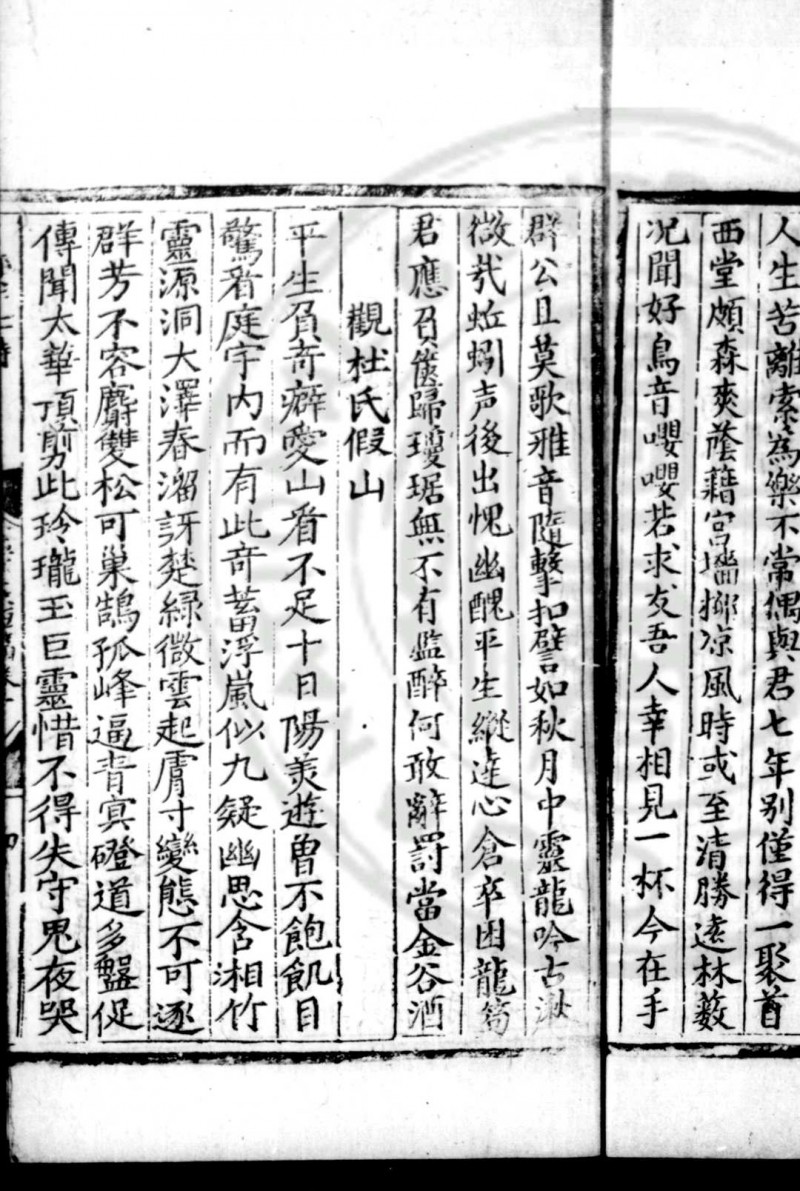 人生苦離索為樂不常偶與君七年别僅得一聚首
西堂頗森爽蔭藉宮墻揶凉風時或至清勝逺林薮
况聞好鳥音嚶嚶若求友吾人幸相見一杯今在手
群公且莫歌雅音隨擊扣譬如秋月中靈龍吟古湫
微㢤蚯蚓声後出愧幽醜平生縱逹心倉卒困龍篤
君應召篋歸瓊琚無不有尴醉何敢辭罸當金谷酒
觀杜氏假山
平生負奇癖愛山看不足十日陽羡遊曽不飽飢目
驚看庭宇内而有此奇蓄浮嵐似九疑幽思含湘竹
靈源洞大澤春溜訝楚緑微雲起膚寸變態不可逐
群芳不容麝雙松可巢鵠孤峰逼青冥磴道多盤促
傳聞太華頂剪此玲瓏玉巨靈惜不得失守鬼夜哭